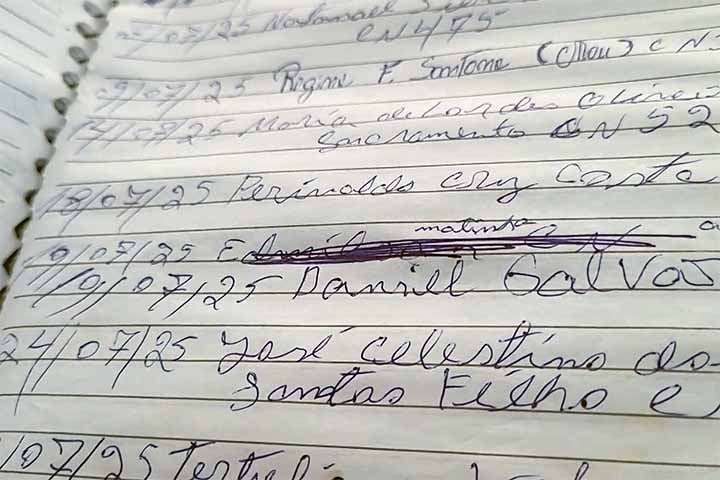 /07/25
CN 475
09/07/25 Regina F. Santana (Chau) C N
17/07/25 Maria de Lordes Olivei
Sacramento CN 52
18/07/25 Perivaldo Cruz Costa
matinha
19/07/25
19/07/25 Daniell Galvas
24/07/25 José Celestino do
Santos Filho e
/07/25